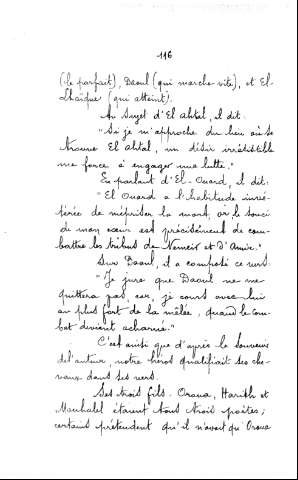 116
(le parfait), Daoul (qui marche vite), et El-
Lhaïque (qui atteint).
Au Sujet d'El ahtal, il dit :
"Si je m'approche du lieu où se
trouve El ahtal, un désir irrésistible
me force à engager une lutte."
En parlant d'El-Ouard, il dit :
"El Ouard a l'habitude invé-
térée de mépriser la mort, or le souci
de mon cœur est précisément de com-
battre les tribus de Nemeir et d'Amir."
Sur Daoul, il a composé ce vers
"Je jure que Daoul ne me
quittera pas, car, je cours avec lui
au plus fort de la mêlée, quand le com-
bat devient acharné."
C'est ainsi que d'après le souvenir
de l'auteur, notre héros qualifiait ses che-
vaux dans ses vers.
Ses trois fils. Oraua, Harikh et
Mouhalel étaient tous trois poètes;
certains prétendent qu'il n'avait qu'Oraua